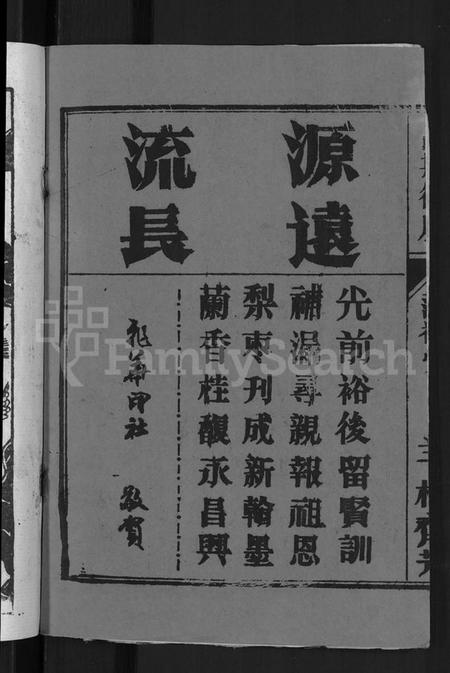 源遠
流長
光前裕後留賢訓
補漏尋親報祖恩
梨棗刊成新翰墨
蘭香桂馥永昌興
印社
敬賀
FamilySearch